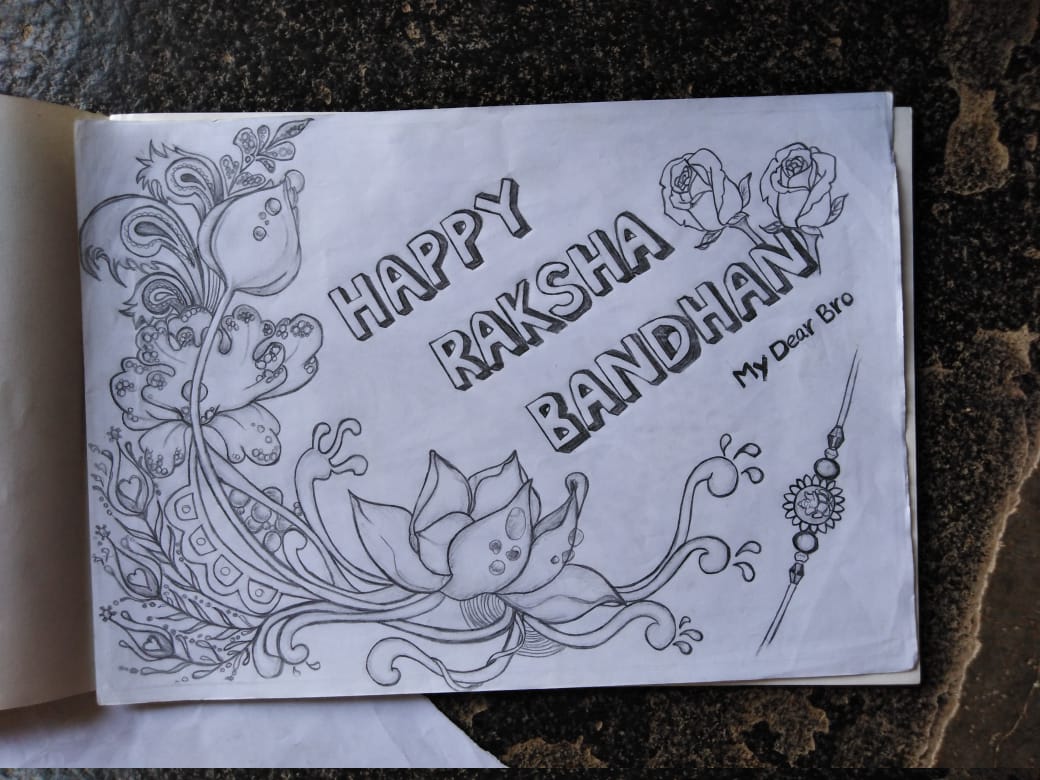 HAPPY
RAKSHA
BANDHAN
My Dear Bro